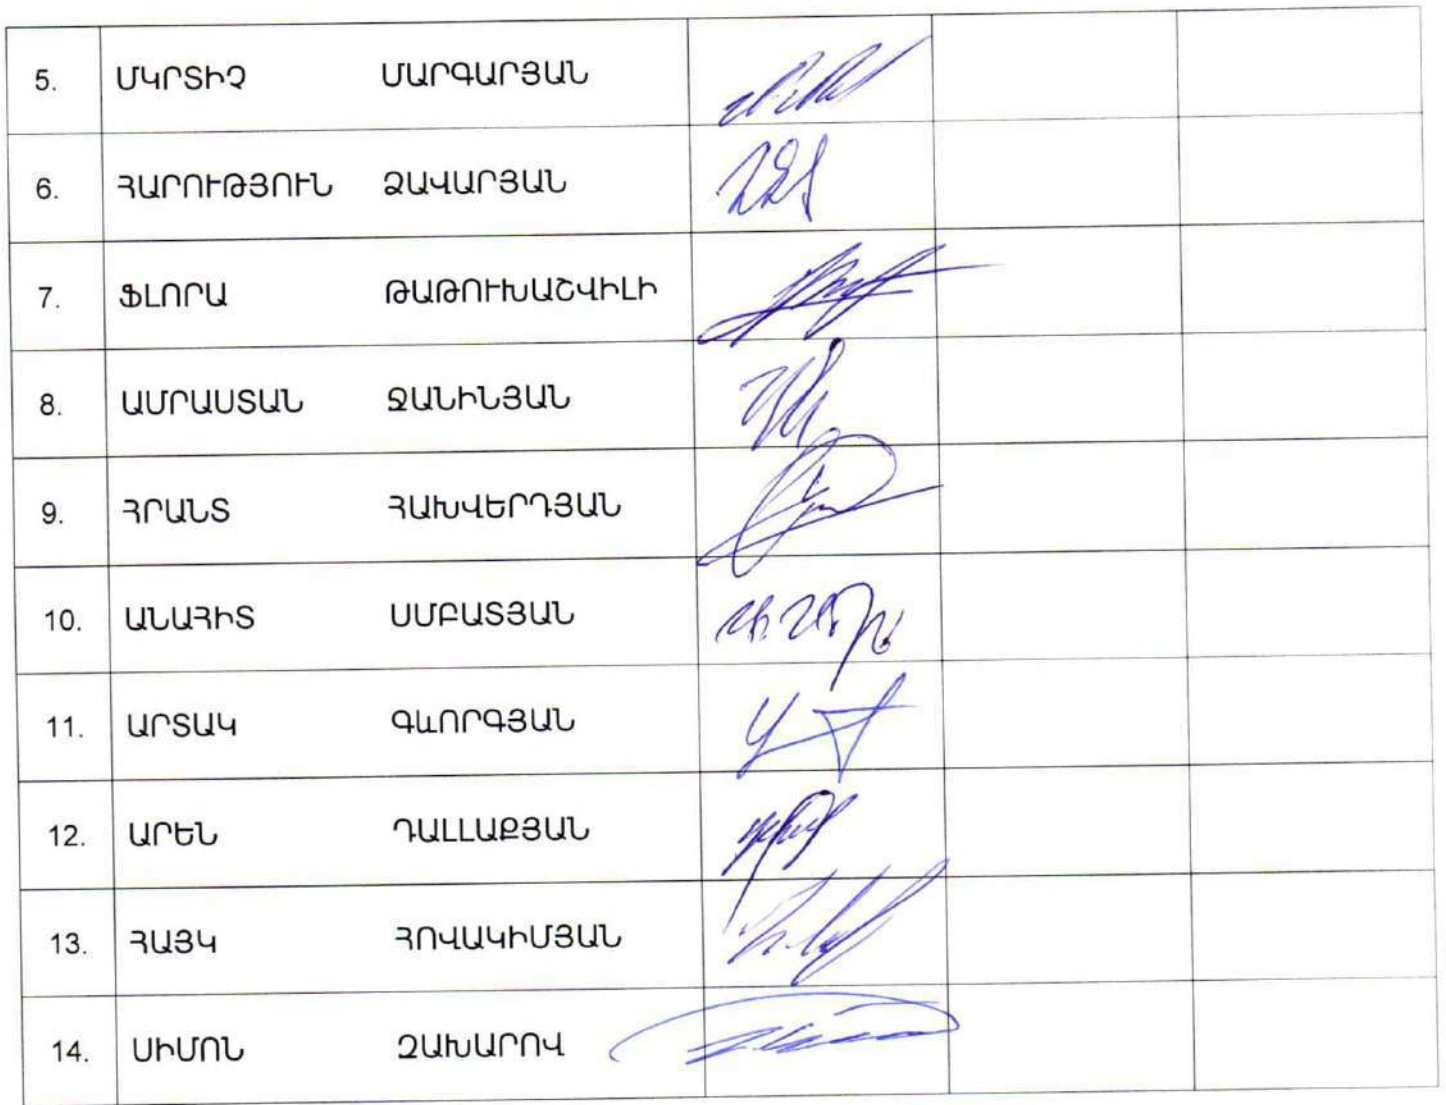 5. ՄԿՐՏԻՉ ՄԱՐԳԱՐՅԱՆ
6. ՀԱՐՈՒԹՅՈՒՆ ՁԱՎԱՐՅԱՆ
7. ՖԼՈՐԱ ԹԱԹՈՒԽԱՇՎԻԼԻ
8. ԱՄՐԱՍՏԱՆ ՋԱՆԻՆՅԱՆ
9. ՀՐԱՆՏ ՀԱԽՎԵՐԴՅԱՆ
10. ԱՆԱՀԻՏ ՍՄԲԱՏՅԱՆ
11. ԱՐՏԱԿ ԳևՈՐԳՅԱՆ
12. ԱՐԵՆ ԴԱԼԼԱՔՅԱՆ
13. ՀԱՅԿ ՀՈՎԱԿԻՄՅԱՆ
14. ՍԻՄՈՆ ԶԱԽԱՐՈՎ